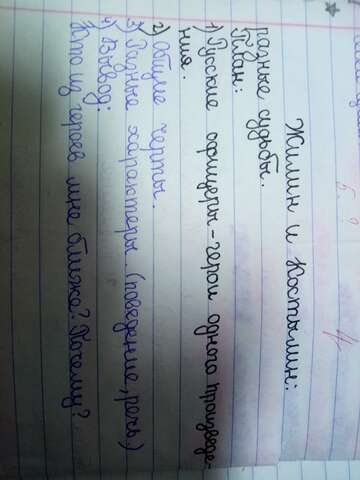 Жилин и Костылин:
разные судьбы.
План:
1) Русские офицеры - герои одного произведе-
ния.
2) Общие черты.
3) Разные характеры. (поведение, речь.)
4) Вывод:
Кто из героев мне ближе? Почему?